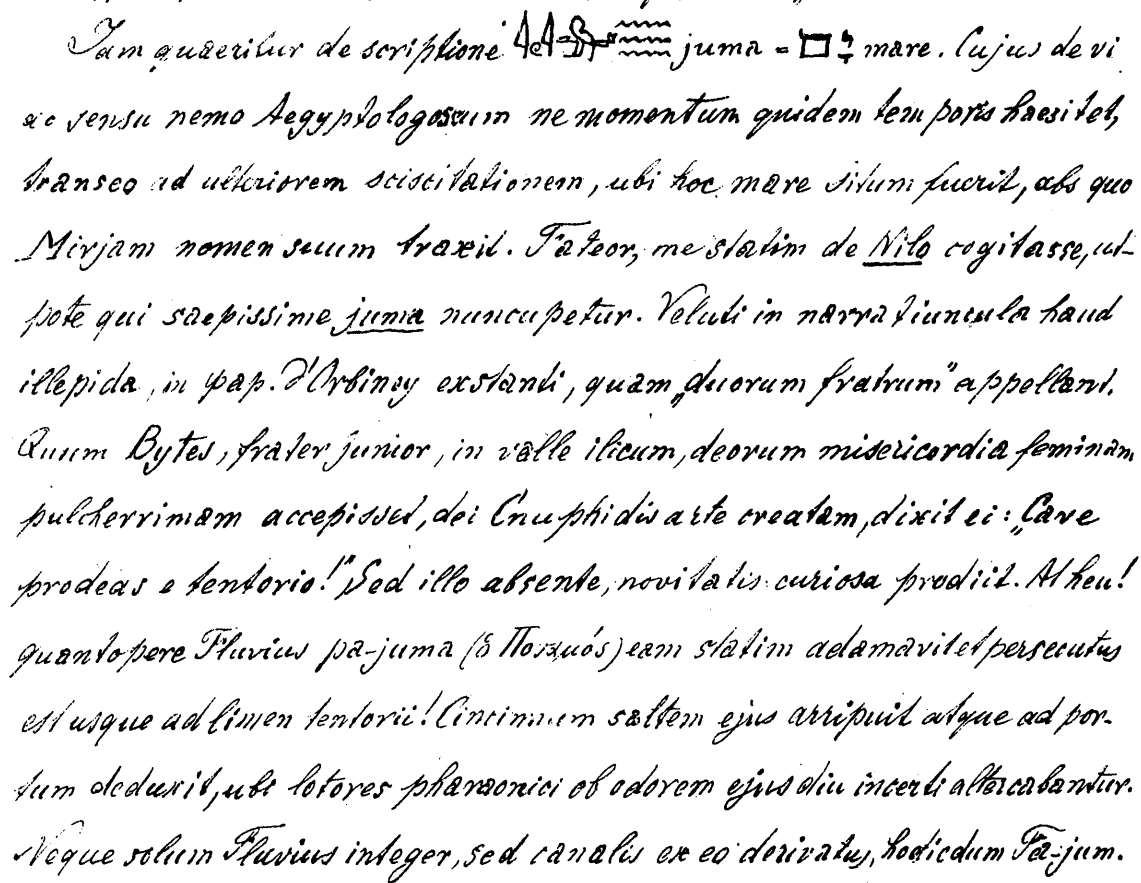 Jam quaeritur de scriptione juma = ים mare. Cujus de vi
ac sensu nemo Aegyptologorum ne momentum quidem temporis haesitet,
transeo ad ulteriorem sciscitationem, ubi hoc mare situm fuerit, abs quo
Mirjam nomen suum traxit. Fateor, me statim de Nilo cogitasse, ut-
pote qui saepissime juma nuncupetur. Veluti in narratiuncula haud
illepida, in pap. d'Orbiney exstanti, quam „duorum fratrum" appellant.
Quum Bytes, frater junior, in valle ilicum, deorum misericordia feminam
pulcherrimam accepisset, dei Cnuphidis arte creatam, dixit ei: „Cave
prodeas e tentorio!" Sed illo absente, novitatis curiosa prodiit. At heu!
quantopere Fluvius pa-juma (ὁ Ποταμός) eam statim adamavit et persecutus
est usque ad limen tentorii! Cincinnum saltem ejus arripuit atque ad por-
tum deduxit, ubi lotores pharaonici ob odorem ejus diu incerti altercabantur.
Neque solum Fluvius integer, sed canalis ex eo derivatus, hodiedum Fa-jum.